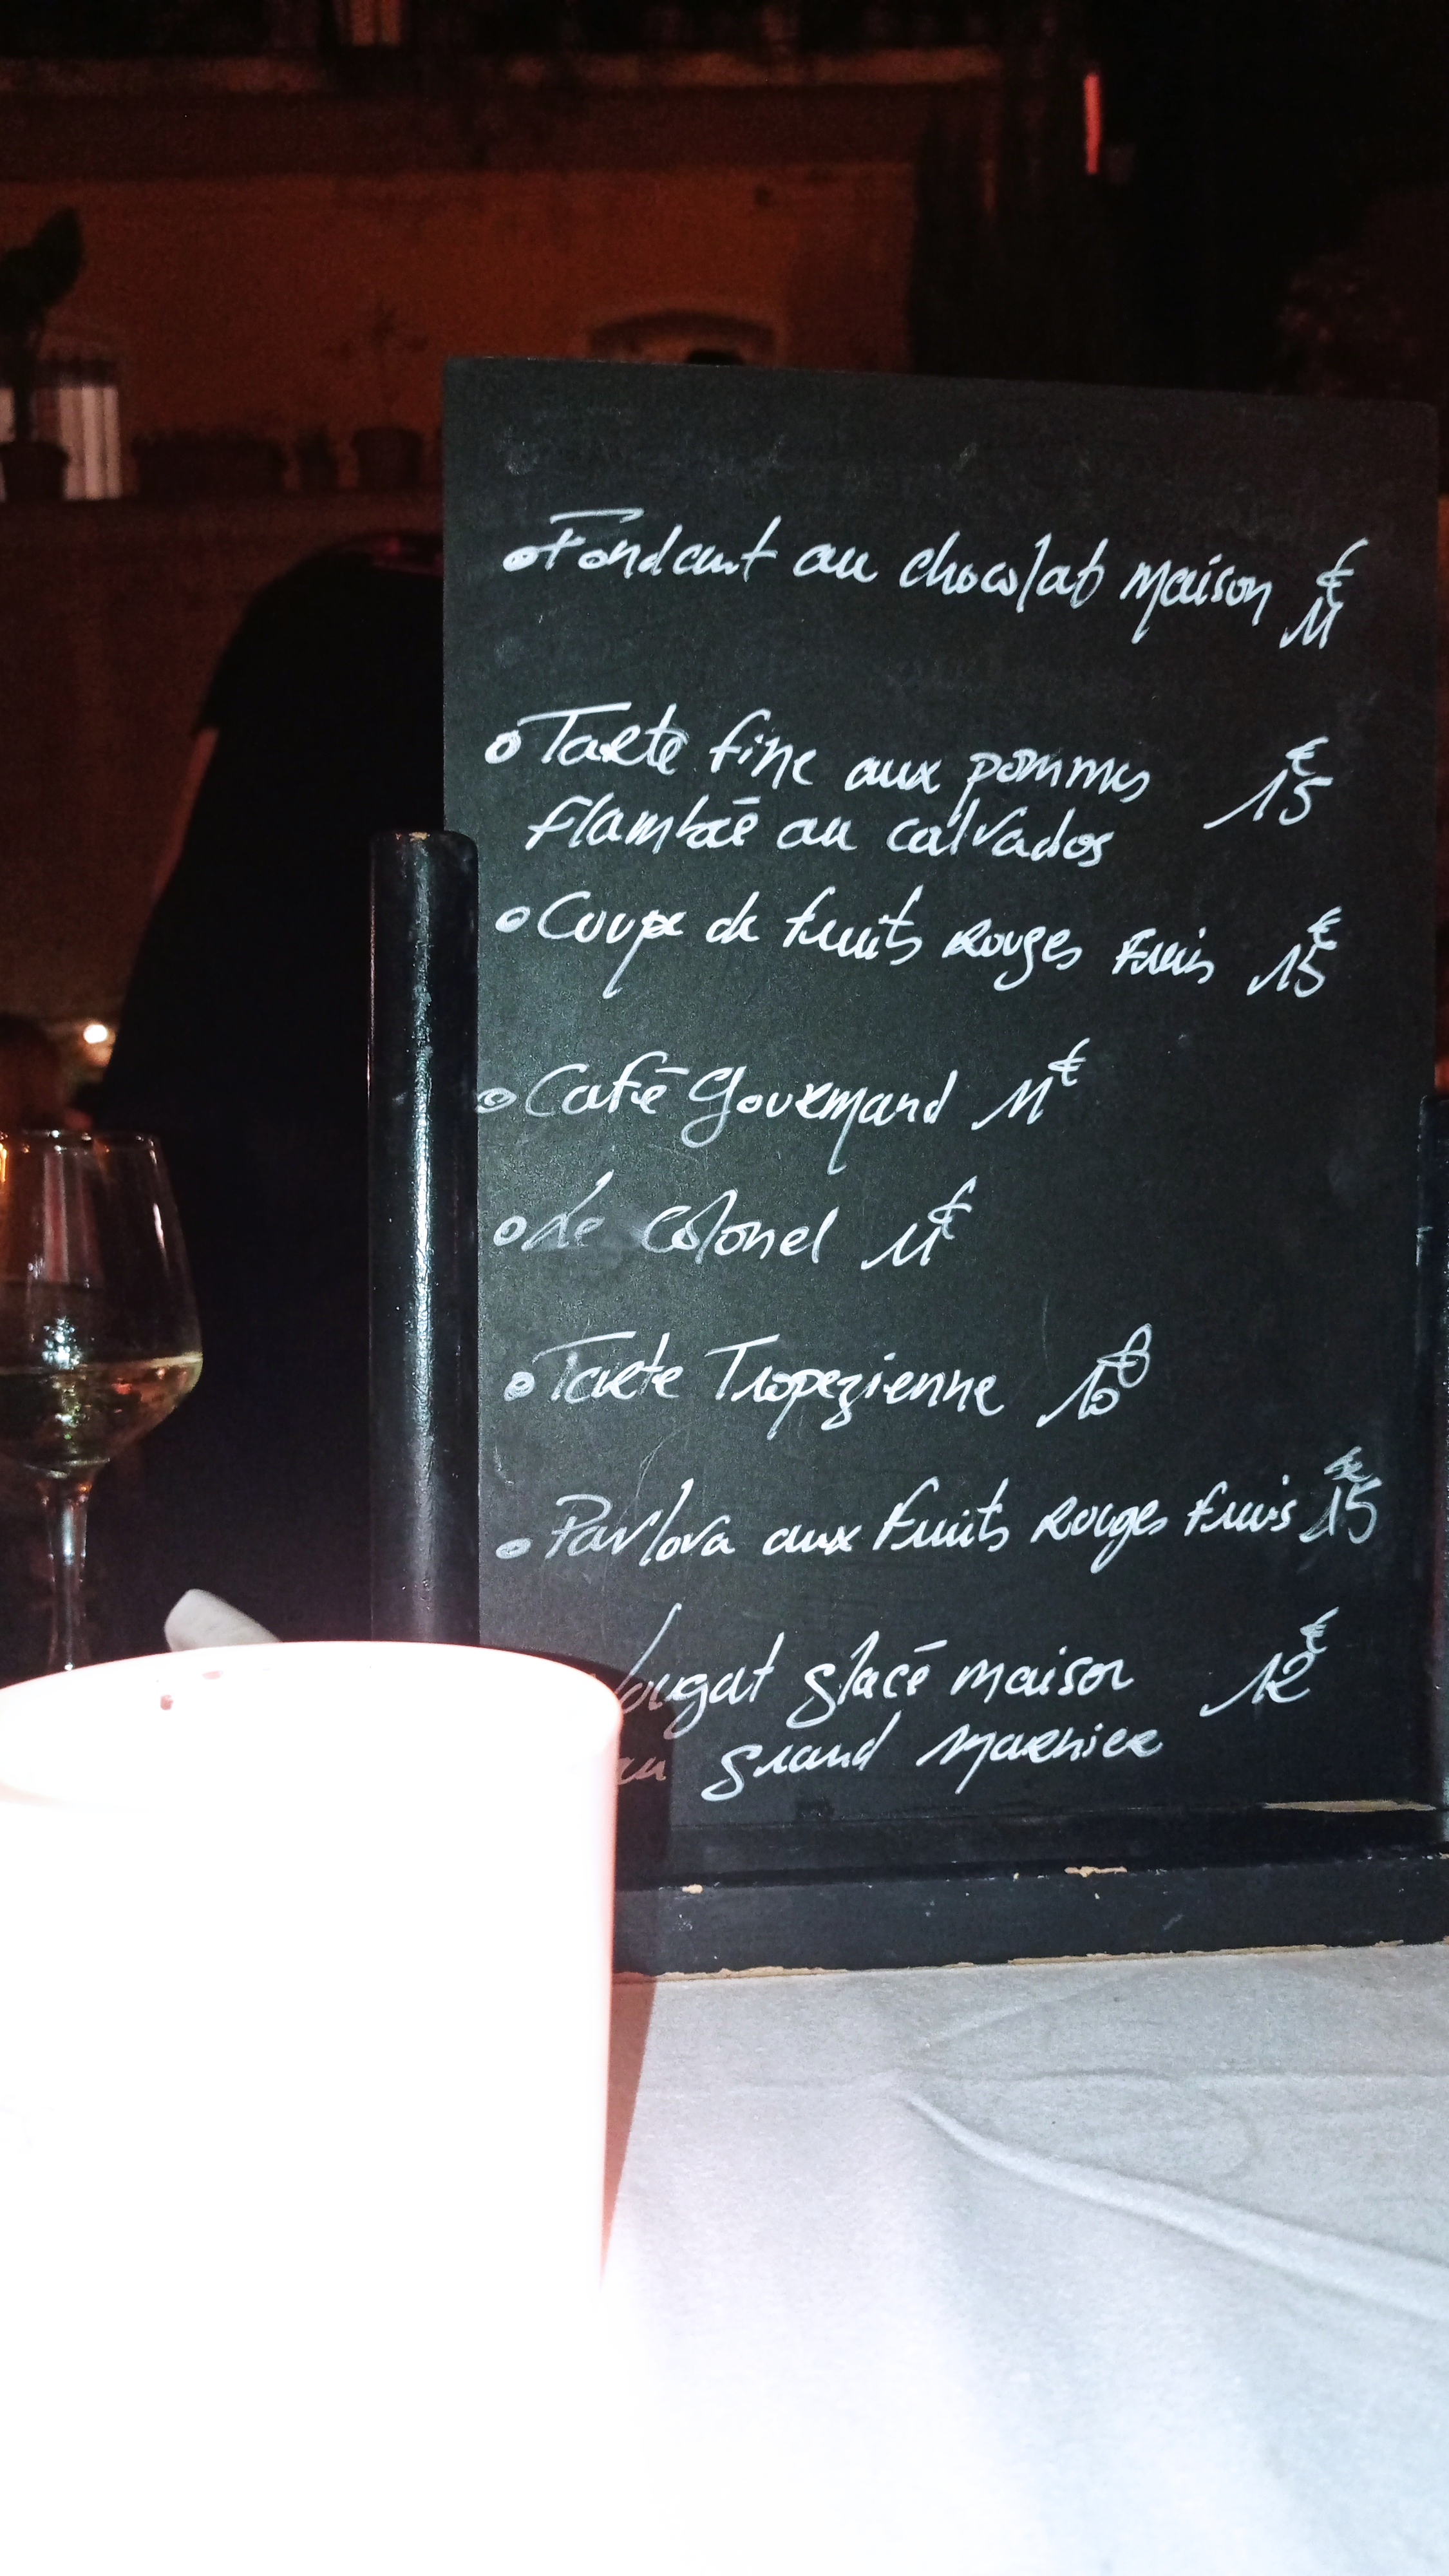 Fondant au chocolat maison 11€
Tarte fine aux pommes 15€
flambée au calvados
Coupe de fruits rouges frais 15€
Café gourmand 11€
Le Colonel 11€
Tarte Tropezienne 10€
Pavlova aux fruits rouges frais 15€
Nougat glacé maison 12€
au grand marnier